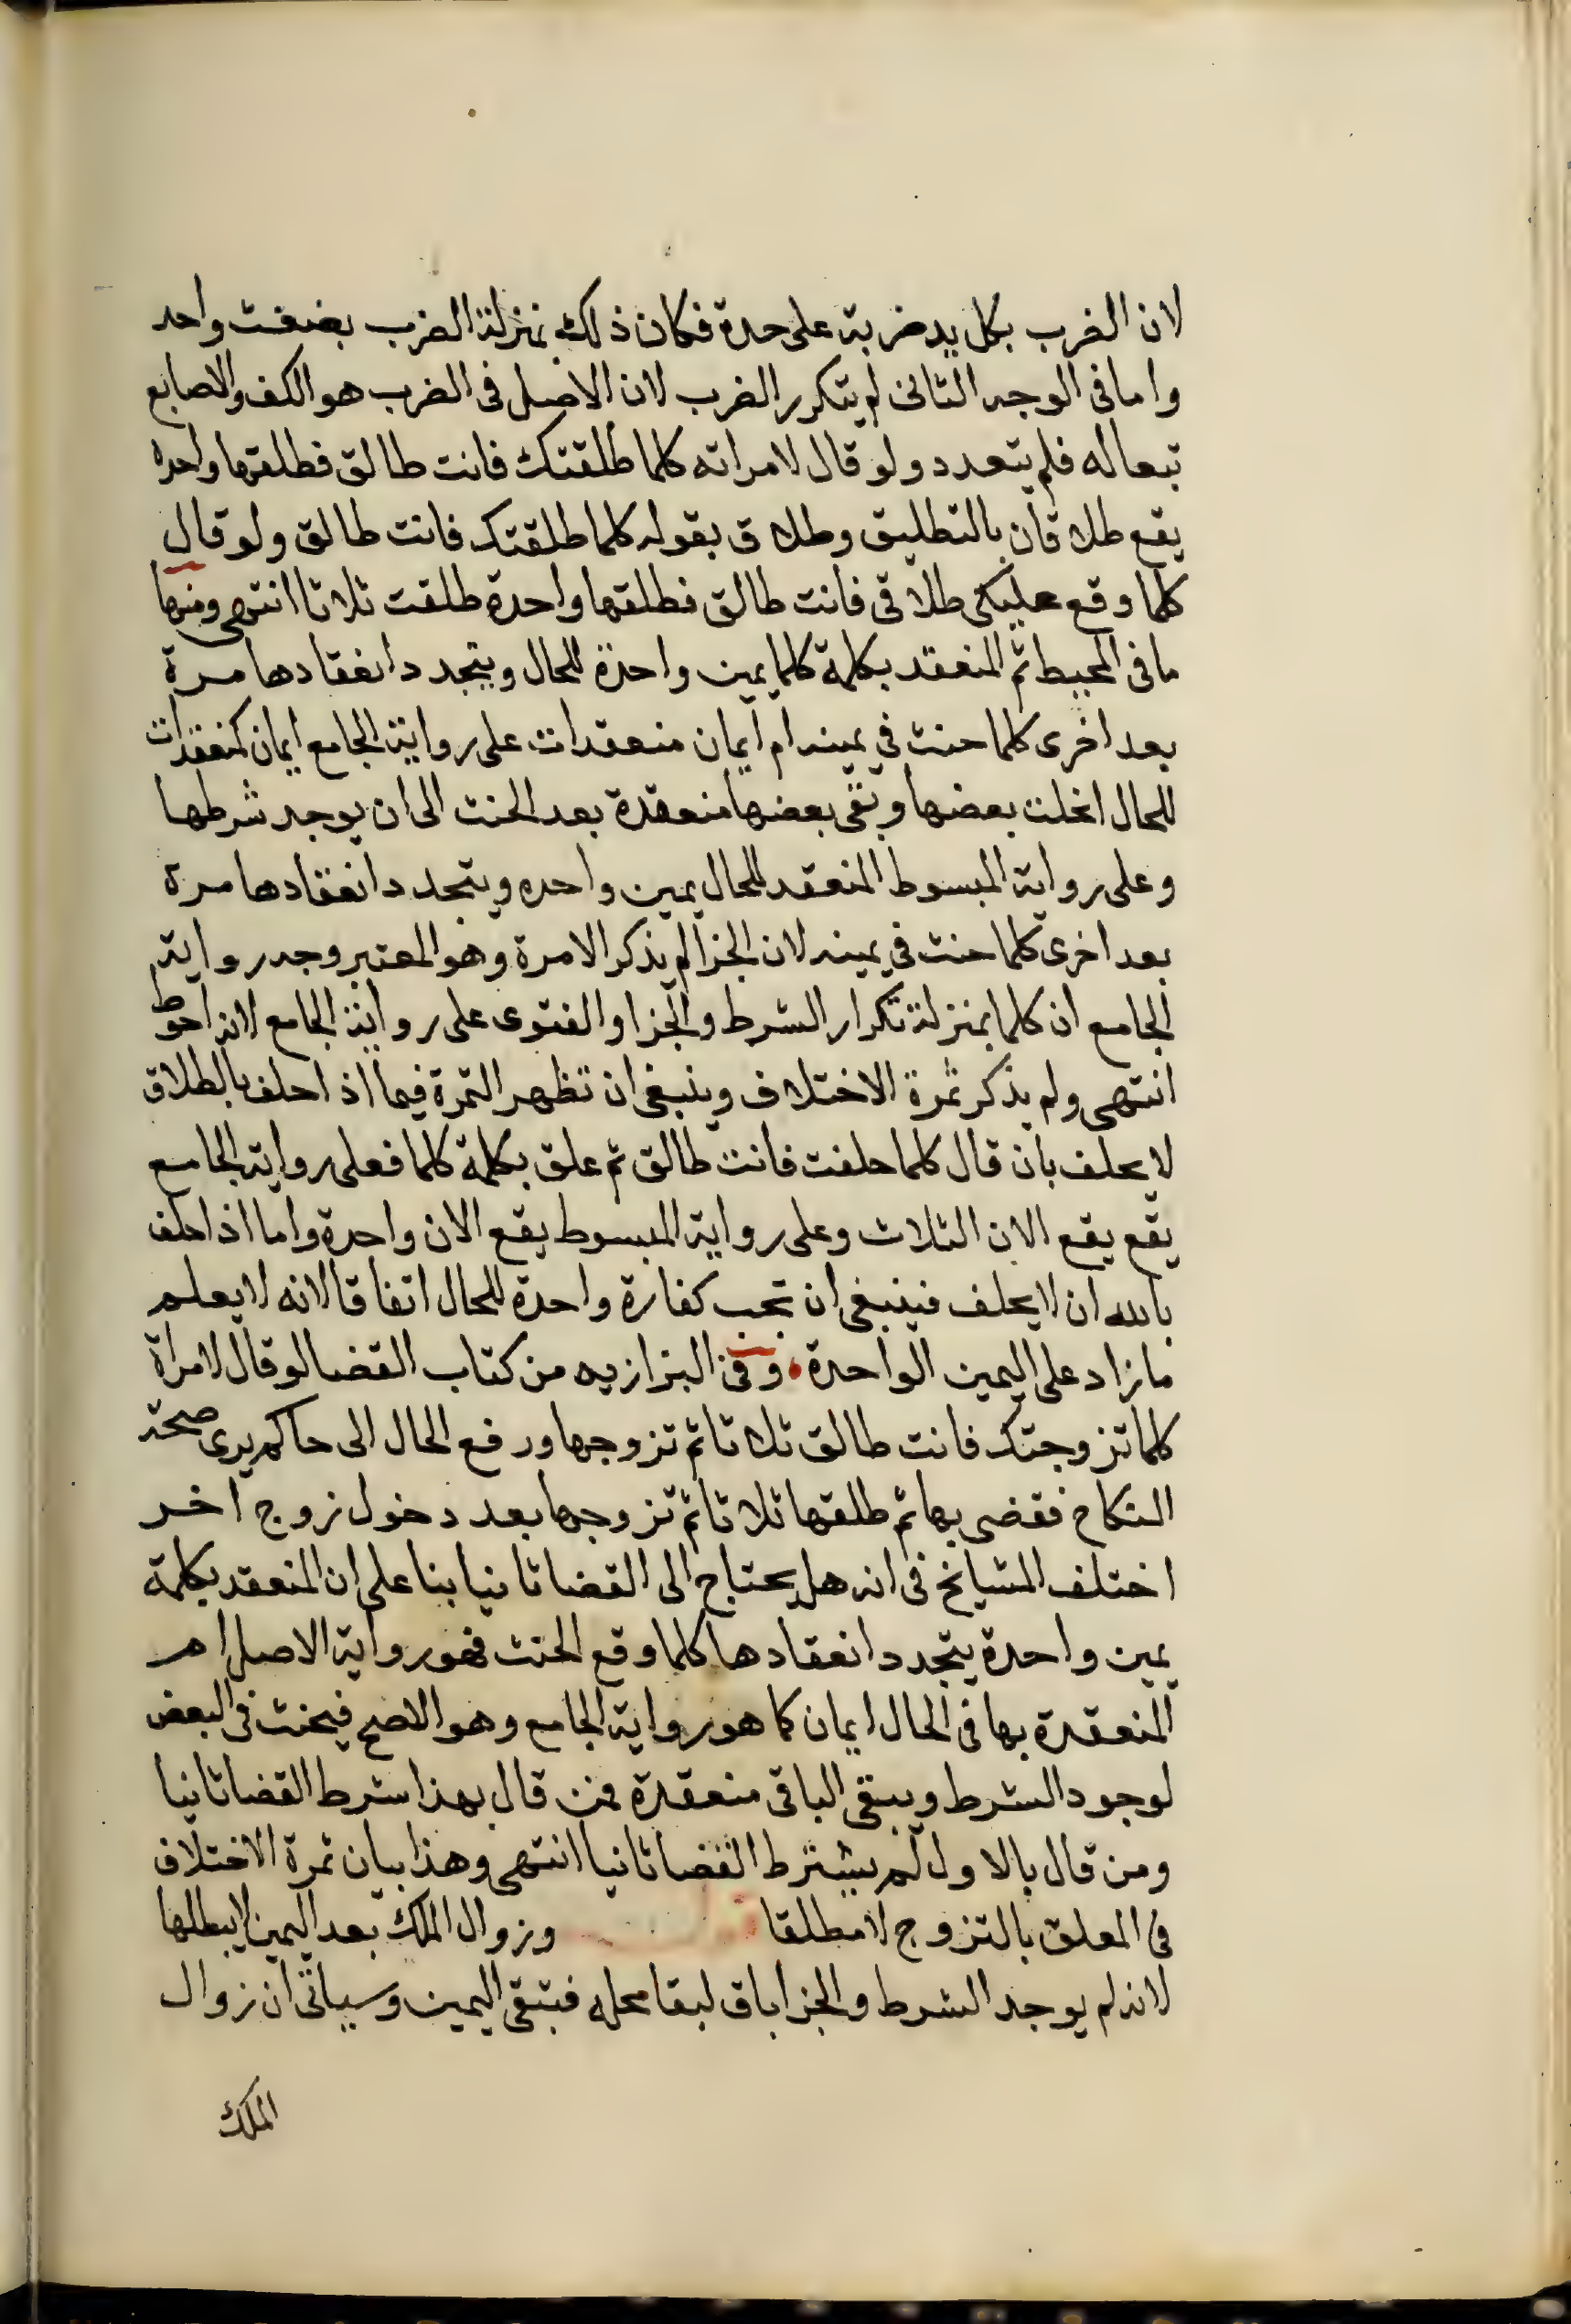 لان الضرب بكل يد ضربة على حدة فكان ذلك بمنزلة الضرب بضغث واحد
واما فى الوجه الثانى لم يتكرر الضرب لان الاصل فى الضرب هو الكف والاصابع
تبعا له فلم يتعدد ولو قال لامراته كلما طلقتك فانت طالق فطلقها واحده
يقع طلاقان بالتطليق وطلاق بقوله كلما طلقتك فانت طالق ولو قال
كلما وقع عليكى طلاقى فانت طالق فطلقها واحدة طلقت ثلاثا انتهى ومنها
ما فى المحيط ثم المنعقد بكلمة كلما يمين واحدة للحال ويتجدد انعقادها مرة
بعد اخرى كلما حنث فى يمينه ام ايمان منعقدات على رواية الجامع ايمان منعقدات
للحال انحلت بعضها وبقى بعضها منعقدة بعد الحنث الى ان يوجد شرطها
وعلى رواية المبسوط المنعقد للحال يمين واحده ويتجدد انعقادها مرة
بعد اخرى كلما حنث فى يمينه لان الجزا لم يذكر الا مرة وهو المعتبر وجه رواية
الجامع ان كلما بمنزلة تكرار الشرط والجزا والفتوى على رواية الجامع لانه احوط
انتهى ولم يذكر ثمرة الاختلاف وينبغى ان تظهر الثمرة فيما اذا حلف بالطلاق
لا يحلف بان قال كلما حلفت فانت طالق ثم علق بكلمة كلما فعلى رواية الجامع
يقع يقع الان الثلاث وعلى رواية المبسوط يقع الان واحدة واما اذا حلف
بالله ان لا يحلف فينبغى ان تجب كفارة واحدة للحال اتفاقا لانه لا يعلم
ما زاد على اليمين الواحدة وفى البزازيه من كتاب القضا لو قال لامراة
كلما تزوجتك فانت طالق ثلاثا ثم تزوجها ورفع الحال الى حاكم يرى صحة
النكاح فقضى بها ثم طلقها ثلاثا ثم تزوجها بعد دخول زوج اخر
اختلف المشايخ فى انه هل يحتاج الى القضا ثانيا بنا على ان المنعقد بكلمة
يمين واحدة يتجدد انعقادها كلما وقع الحنث فهو رواية الاصل ام
المنعقدة بها فى الحال ايمان كما هو رواية الجامع وهو الاصح فيحنث فى البعض
لوجود الشرط ويبقى الباقى منعقدة فمن قال بهذا شرط القضا ثانيا
ومن قال بالاول لم يشترط القضا ثانيا انتهى وهذا بيان ثمرة الاختلاف
فى المعلق بالتزوج لا مطلقا وزوال الملك بعد اليمين لا يبطلها
لانه لم يوجد الشرط والجزا باق لبقا محله فتبقى اليمين وسياتى ان زوال
الملك